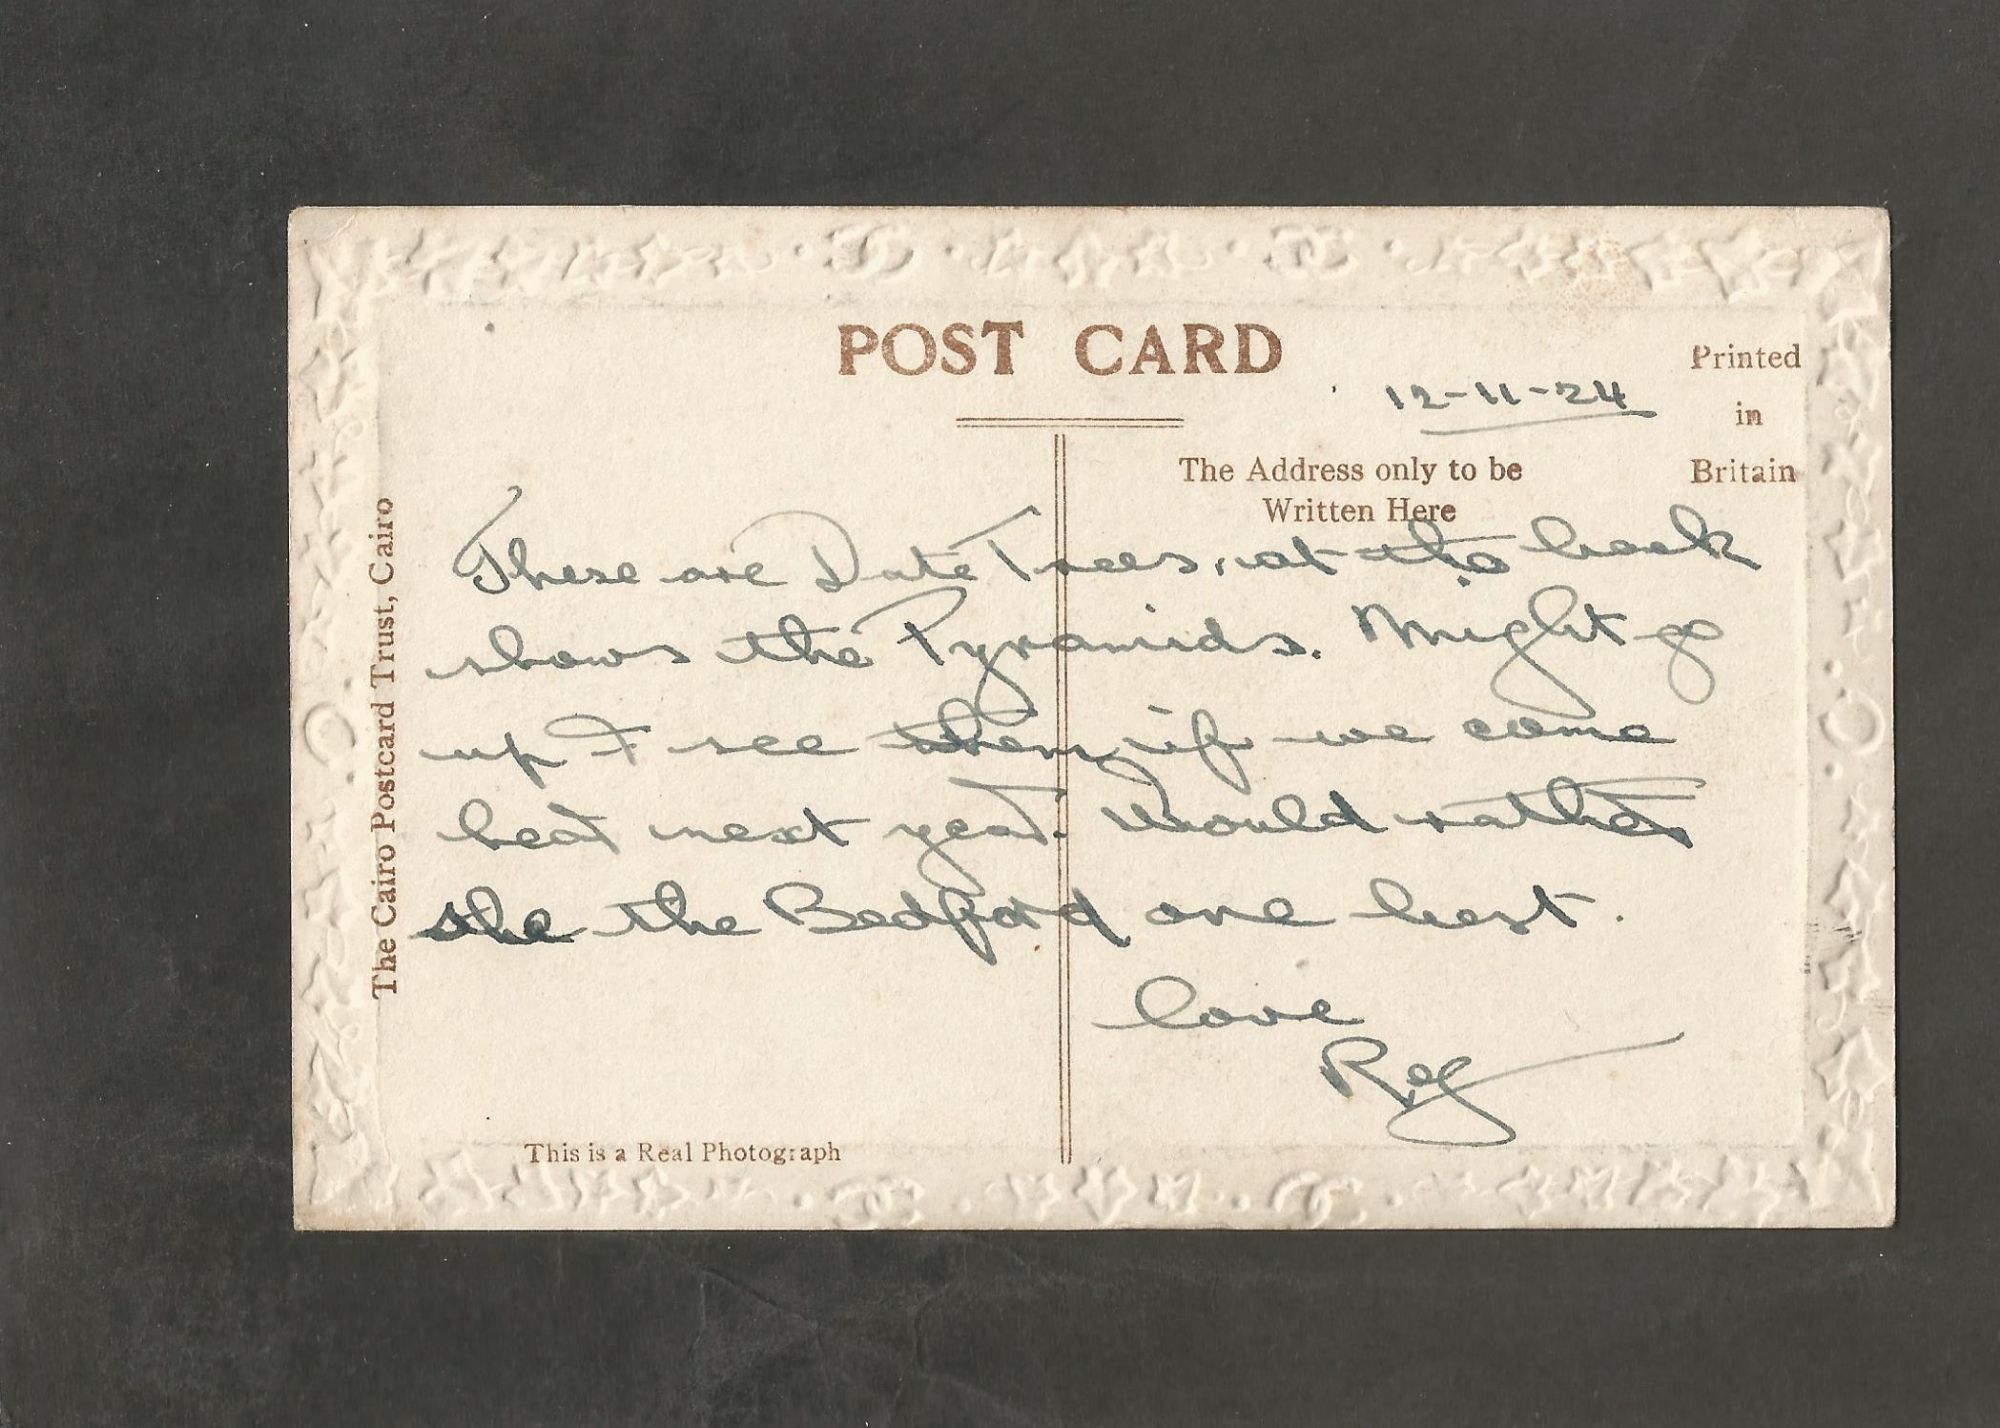 POST CARD
Printed
in
Britain
12-11-24
The Address only to be
Written Here
The Cairo Postcard Trust, Cairo
These are Date Trees, at the back
shows the Pyramids. Might go
up & see them if we come
next year. Would rather
the the Bedford one best.
love
Reg
This is a Real Photograph